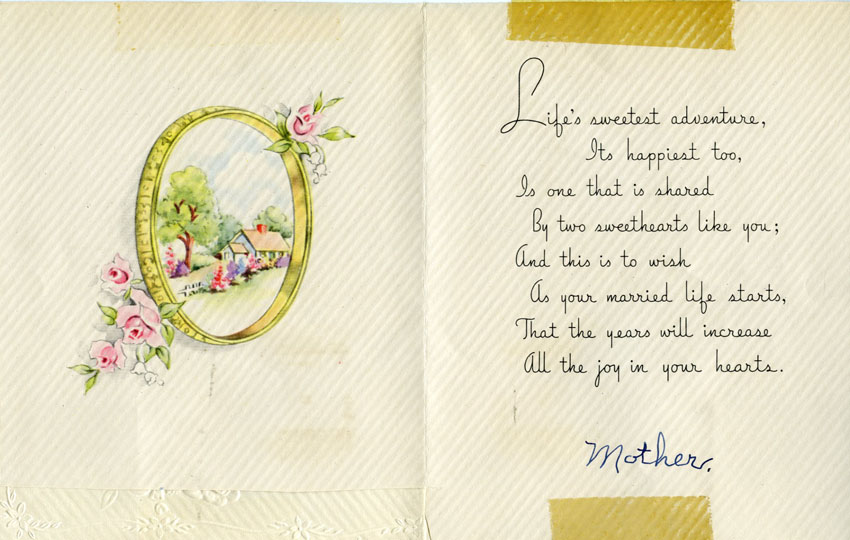 Life's sweetest adventure,
Its happiest too,
Is one that is shared
By two sweethearts like you;
And this is to wish
As your married life starts,
That the years will increase
All the joy in your hearts.
Mother.